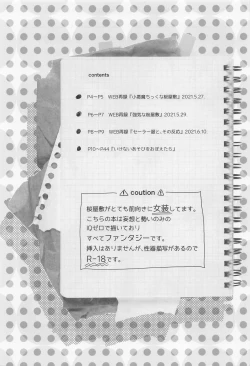 contents
P4~P5 WEB再録『小悪魔ちっくな桜屋敷』2021.5.27.
P6~P7 WEB再録『健気な桜屋敷』2021.5.29.
P8~P9 WEB再録『セーラー服と、その反応』2021.6.10.
P10~P44『いけないあそびをおぼえたら』
⚠ coution ⚠
桜屋敷がとても前向きに女装してます。
こちらの本は妄想と勢いのみの
IQゼロで描いており
すべてファンタジーです。
挿入はありませんが、性癖描写があるので
R-18です。